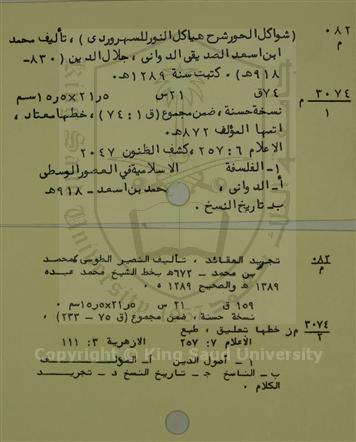 ٠٨٢
م
( شواكل الحور شرح هياكل النور للسهروردى ) ، تأليف محمد
ابن اسعد الصديقى الدوانى ، جلال الدين ( ٨٣٠-
٩١٨هـ ) . كتبت سنة ١٢٨٩هـ.
٣٠٧٤
١
م
٧٤ق ٢١س ٥ر٢١×٥ر١٥سم
نسخة حسنة ، ضمن مجموع (ق ١ : ٧٤) ، خطها معتاد ،
اتمها المؤلف ٨٧٢هـ.
الاعلام ٦: ٢٥٧ ، كشف الظنون ٢٠٤٧
١- الفلسفة الاسلامية فى العصور الوسطى
أ- الدوانى ، محمد بن اسعد - ٩١٨هـ
ب- تاريخ النسخ .
٠٨٢
م
تجريد العقائد ، تأليف النصير الطوسى محمد
بن محمد - ٦٧٢هـ بخط الشيخ محمد عبده
١٣٨٩ هـ والصحيح ١٢٨٩ هـ .
١٥٩ ق ٢١ س ٥ر٢١×٥ر١٥سم .
٣٠٧٤
٢
م
نسخة حسنة ، ضمن مجموع (ق ٧٥ - ٢٣٣) ،
خطها تعليق ، طبع
الأعلام ٧: ٢٥٧ الازهرية ٣: ١١١
١ - أصول الدين أ- المؤلف
ب - الناسخ ج - تاريخ النسخ د - تجريد
الكلام .
Copyright © King Saud University